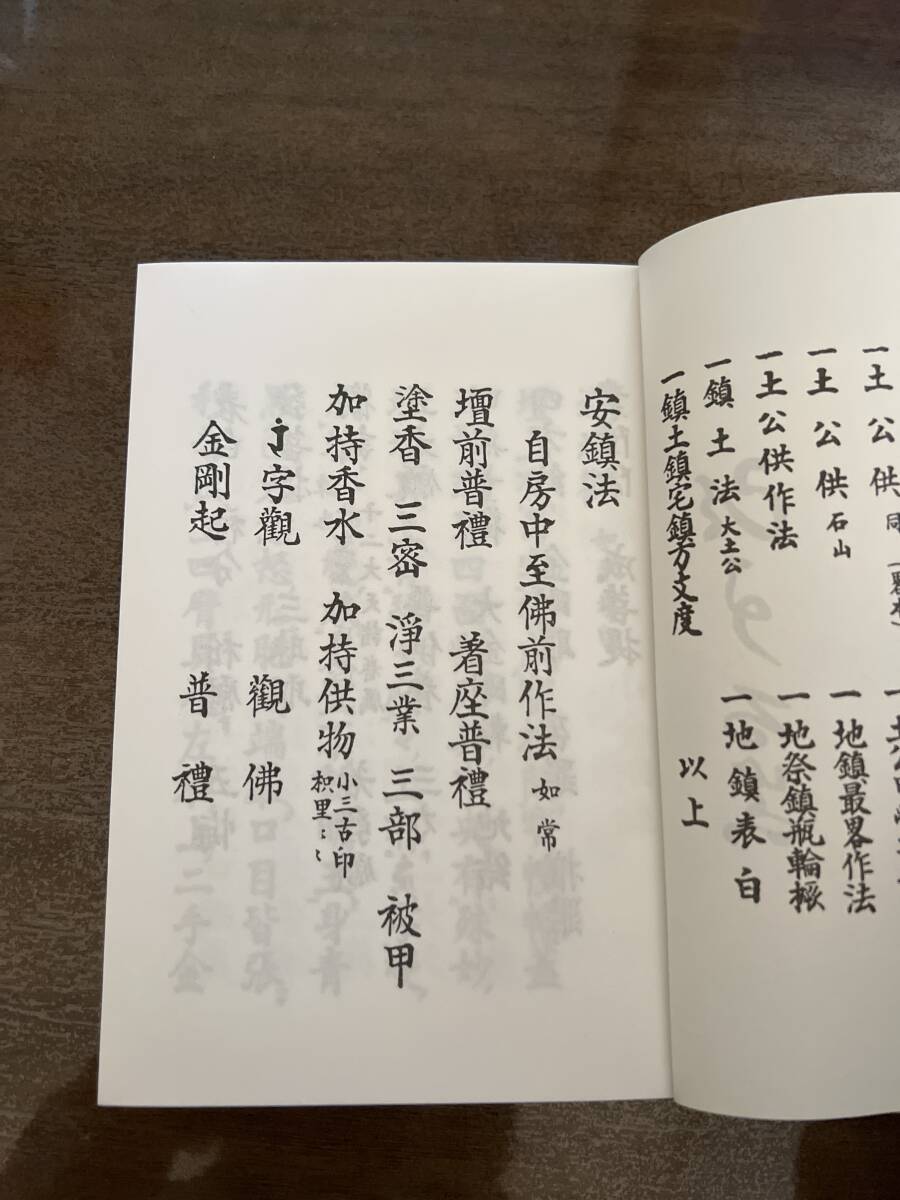 一土公供
一土公供 石山
一土公供作法
一鎮土法 大土公
一鎮土鎮宅鎮方支度
一地鎮最畧作法
一地祭鎮瓶輪橛
一地鎮表白
以上
安鎮法
自房中至佛前作法 如常
壇前普禮 著座普禮
塗香 三密 淨三業 三部 被甲
加持香水 加持供物 小三古印
枳里〻〻
字觀 觀佛
金剛起 普禮